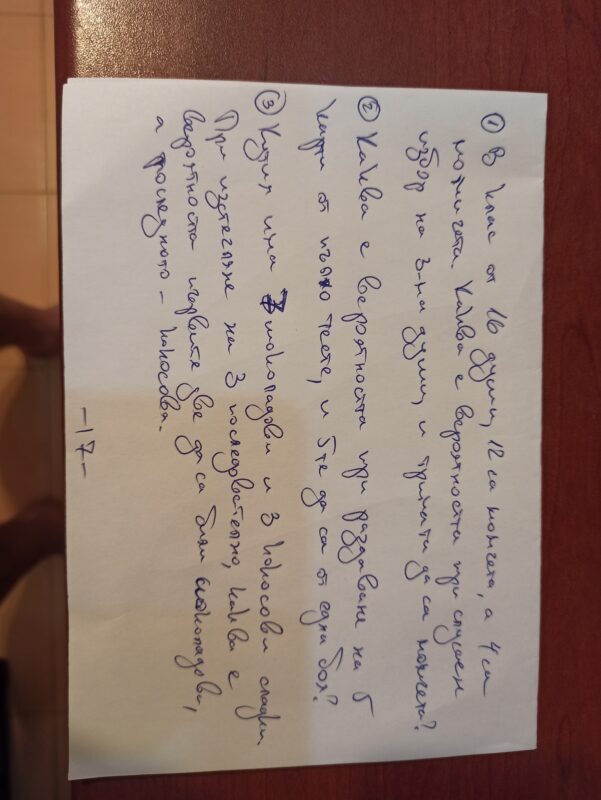 ① В клас от 16 души, 12 са момчета, а 4 са
момичета. Каква е вероятността при случаен
избор на 3-ма души, и тримата да са момчета?
② Каква е вероятността при раздаване на 5
карти от пълно тесте, и 5те да са от една боя?
③ Кутия има 7 шоколадови и 3 кокосови сладки.
При изтегляне на 3 последователно, каква е
вероятността първите две да са били шоколадови,
а последното - кокосова.
-17-